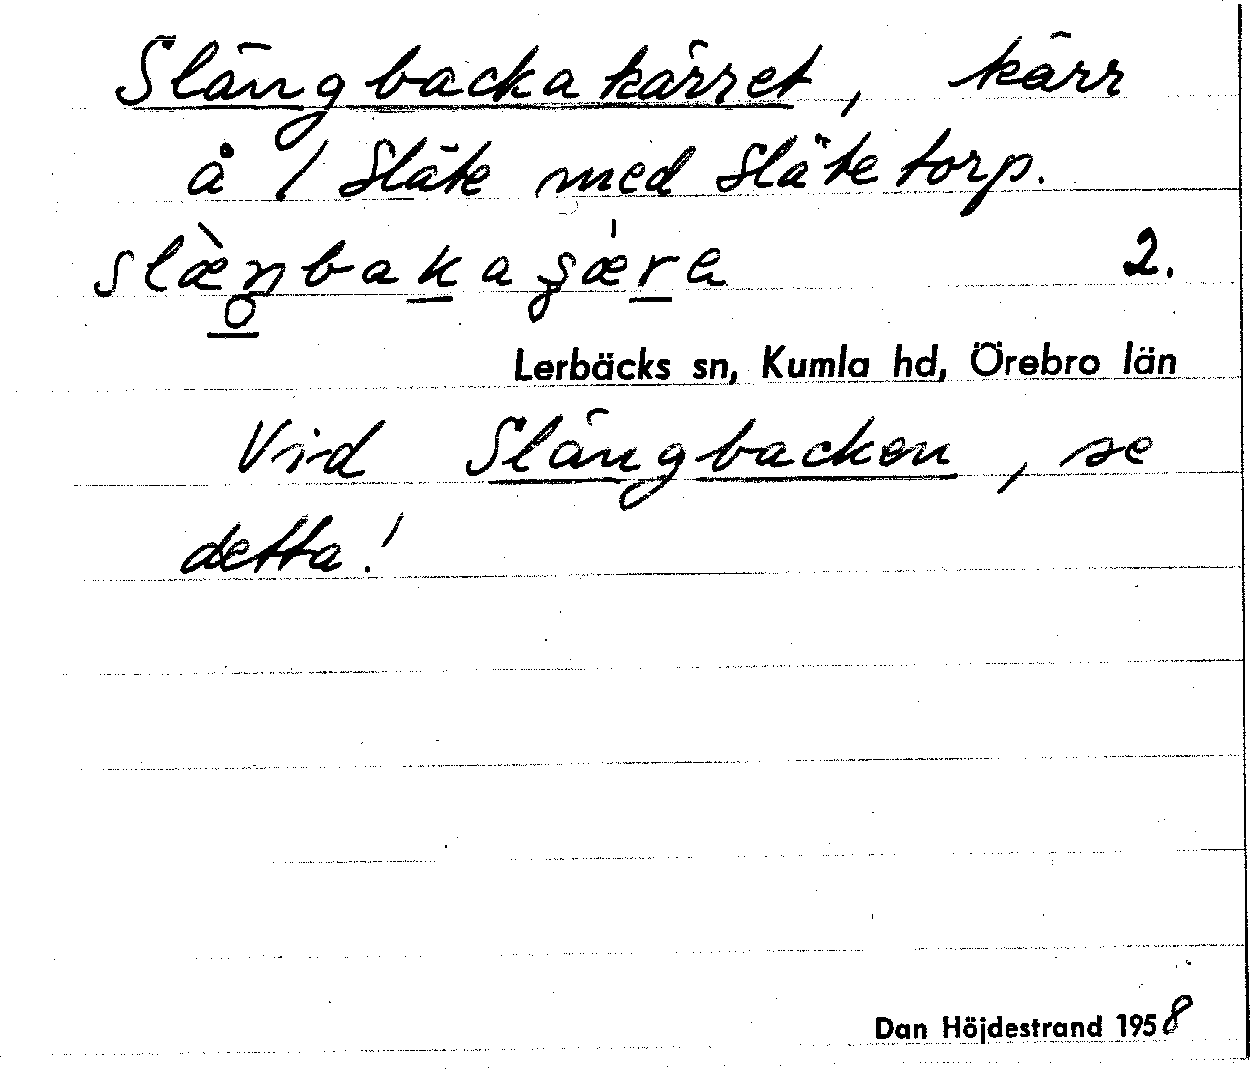 Slängbackakärret, kärr
å 1 Släte med Slätetorp.
slæ̀n̥bakaʂæ̍ra 2.
Lerbäcks sn, Kumla hd, Örebro län
Vid Slängbacken, se
detta!
Dan Höjdestrand 1958